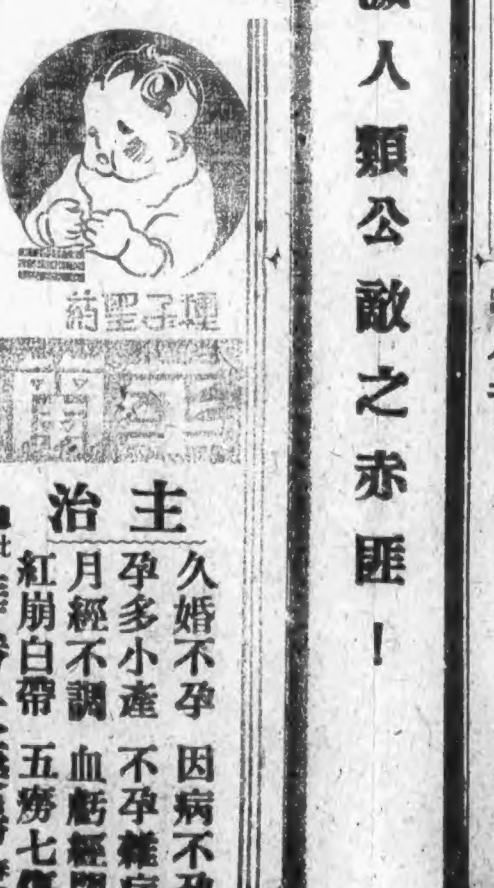 人類公敵之赤匪！
種子聖葯
主治
久婚不孕 因病不孕
孕多小產 不孕雜症
月經不調 血虧經
紅崩白帶 五癆七傷